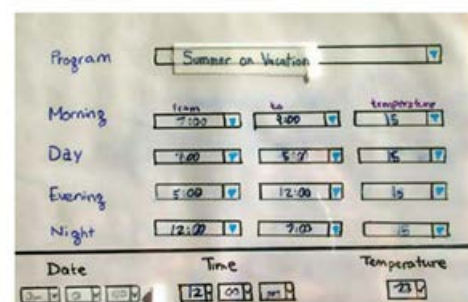 Program Summer on Vacation
from to temperature
Morning 7:00 9:00 15
Day 9:00 5:00 15
Evening 5:00 12:00 15
Night 12:00 7:00 15
Date Time Temperature
12 00 pm 23